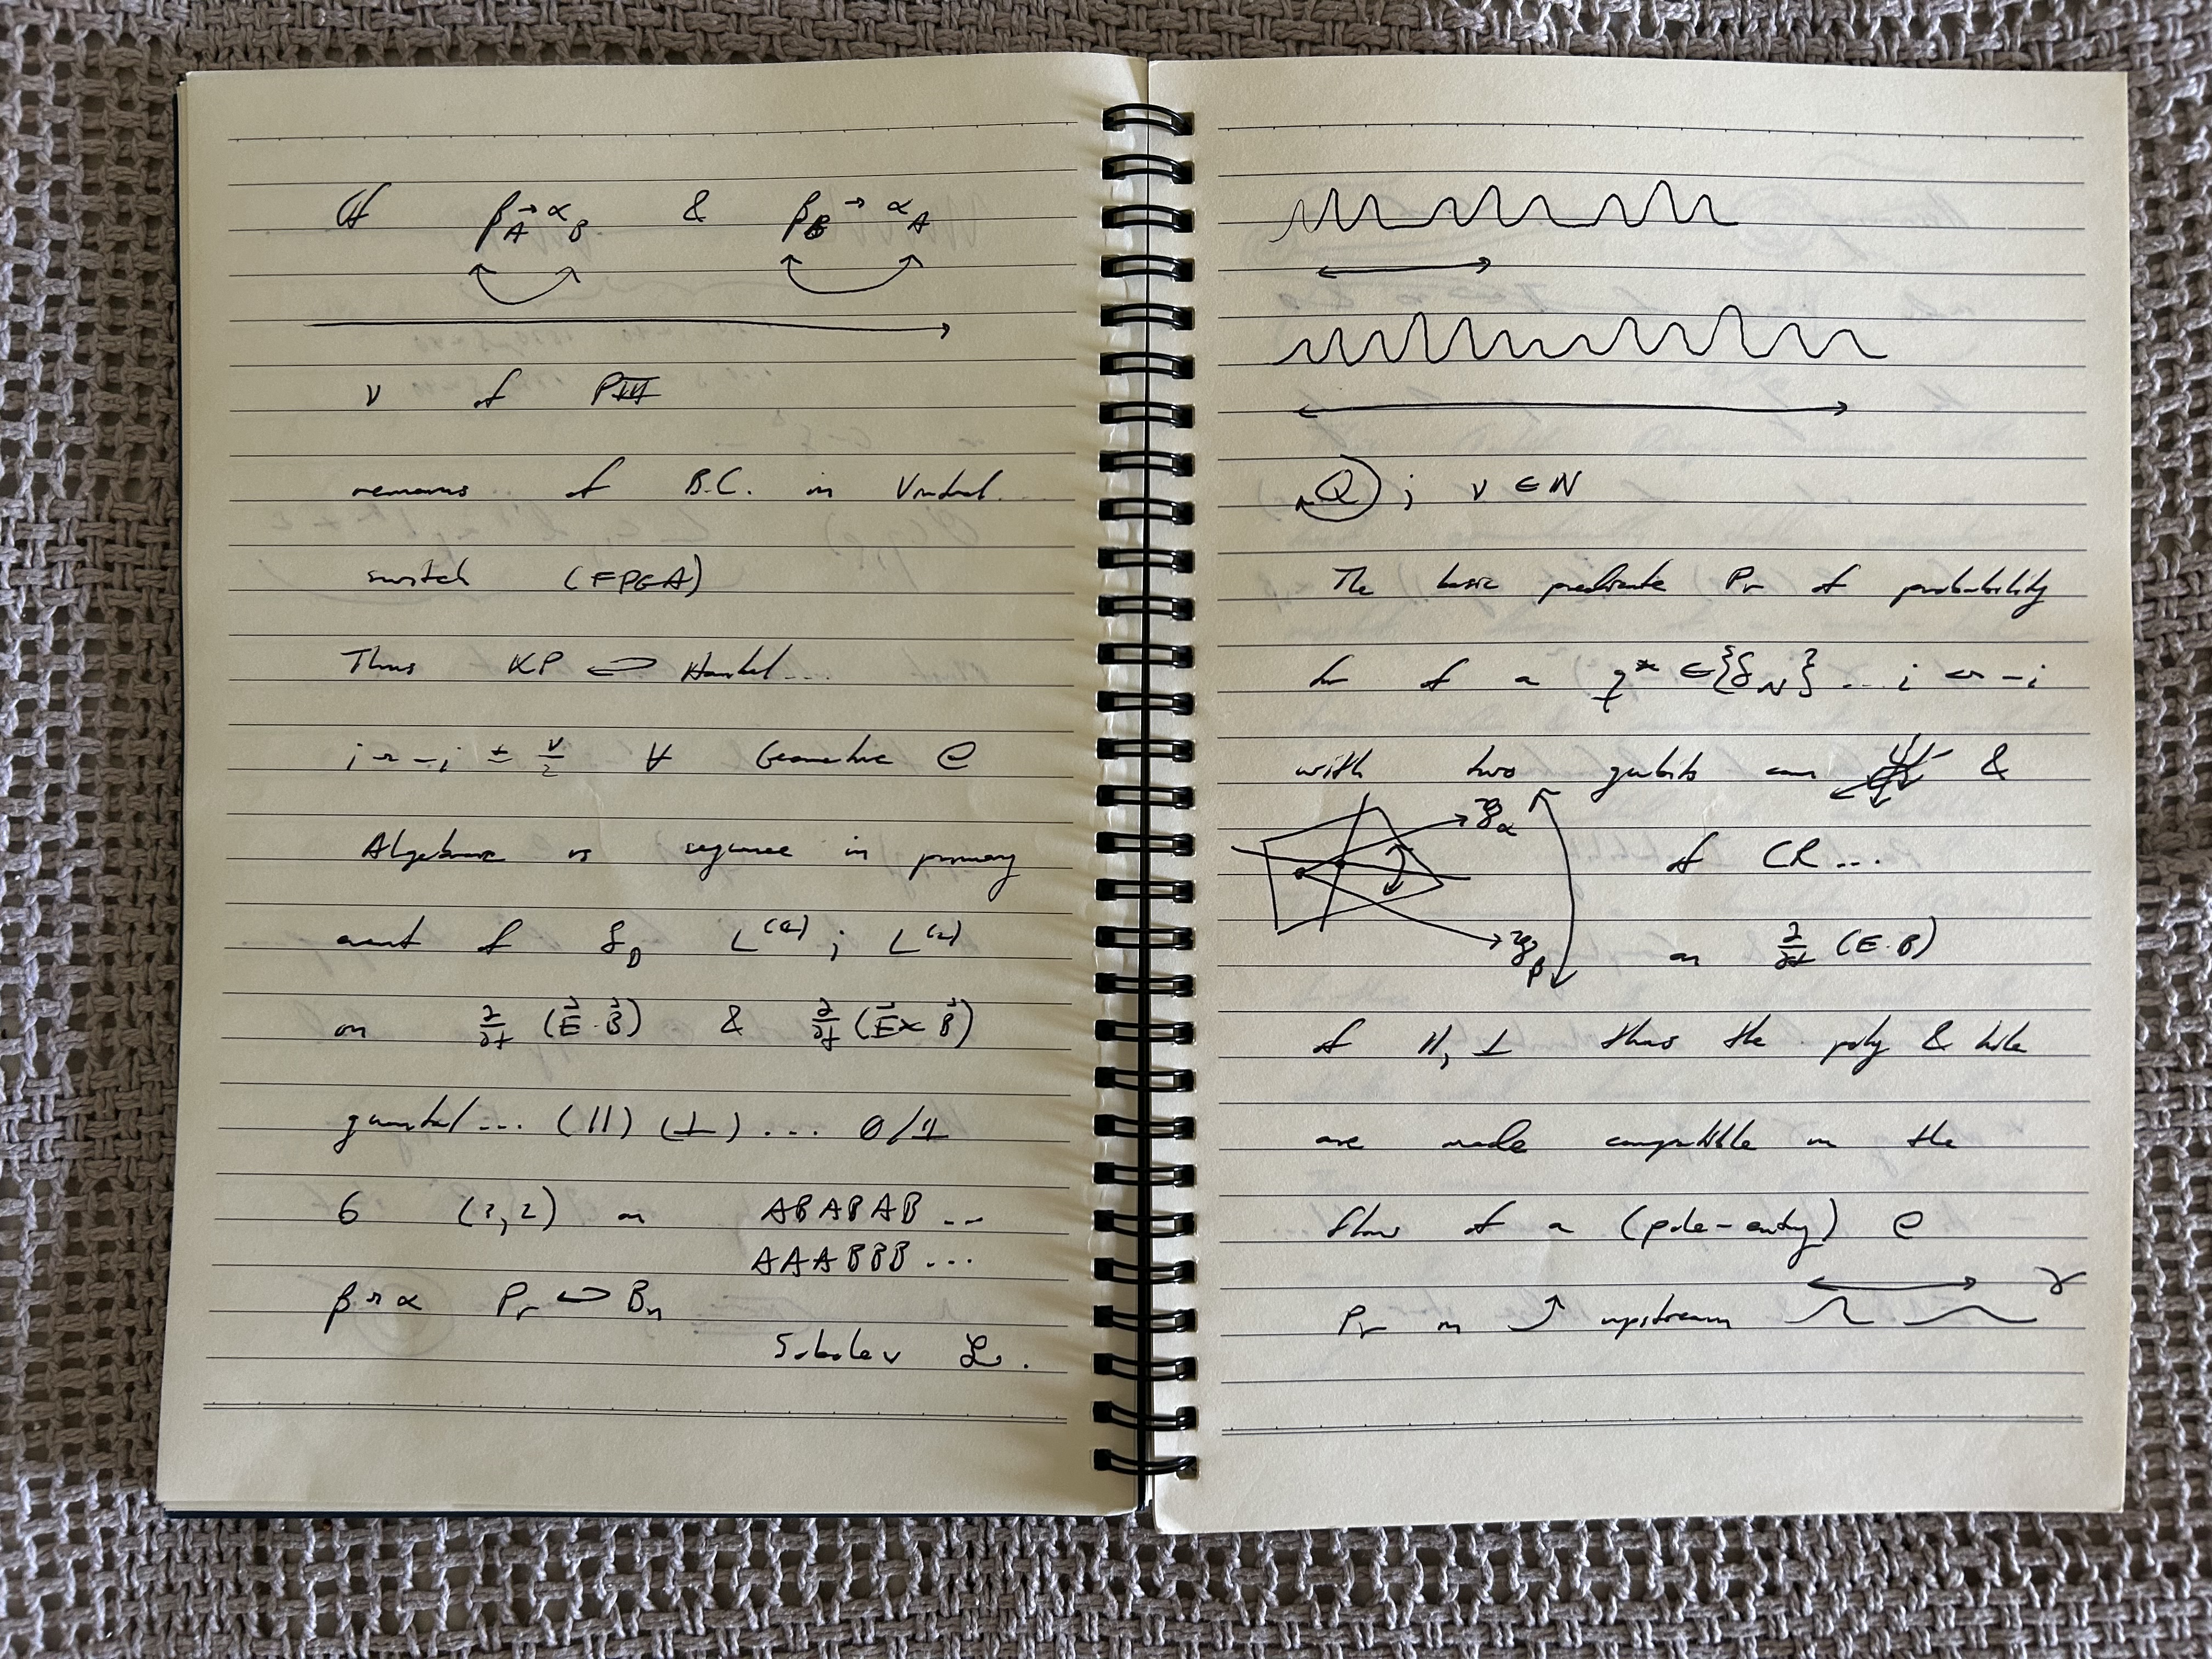 β A → α B & β B → α A
ν of PIII
remains of B.C. in
switch (FPGA)
Thus KP ⇔ Hankel...
i → -i ± ν/2 ∀ Geometric @
Algebraic vs sequence in primary
of δ_D L^(2)
on ∂/∂t (E⃗·B⃗) & ∂/∂t (E⃗×B⃗)
... (||) (⊥) ... 0/1
6 (2,2) on ABABAB ...
AAABBB ...
β → α Pr ⇔ Bn
Sobolev ℒ.
Q ; ν ∈ N
The basic predicate Pr of probability
for of a q* ∈ {δ_N} ... i ↔ -i
with two qubits can &
α
of CR...
β
on ∂/∂t (E·B)
of ||, ⊥ thus the poly & hole
are made compatible in the
flow of a (pole-entry) @
Pr in upstream γ